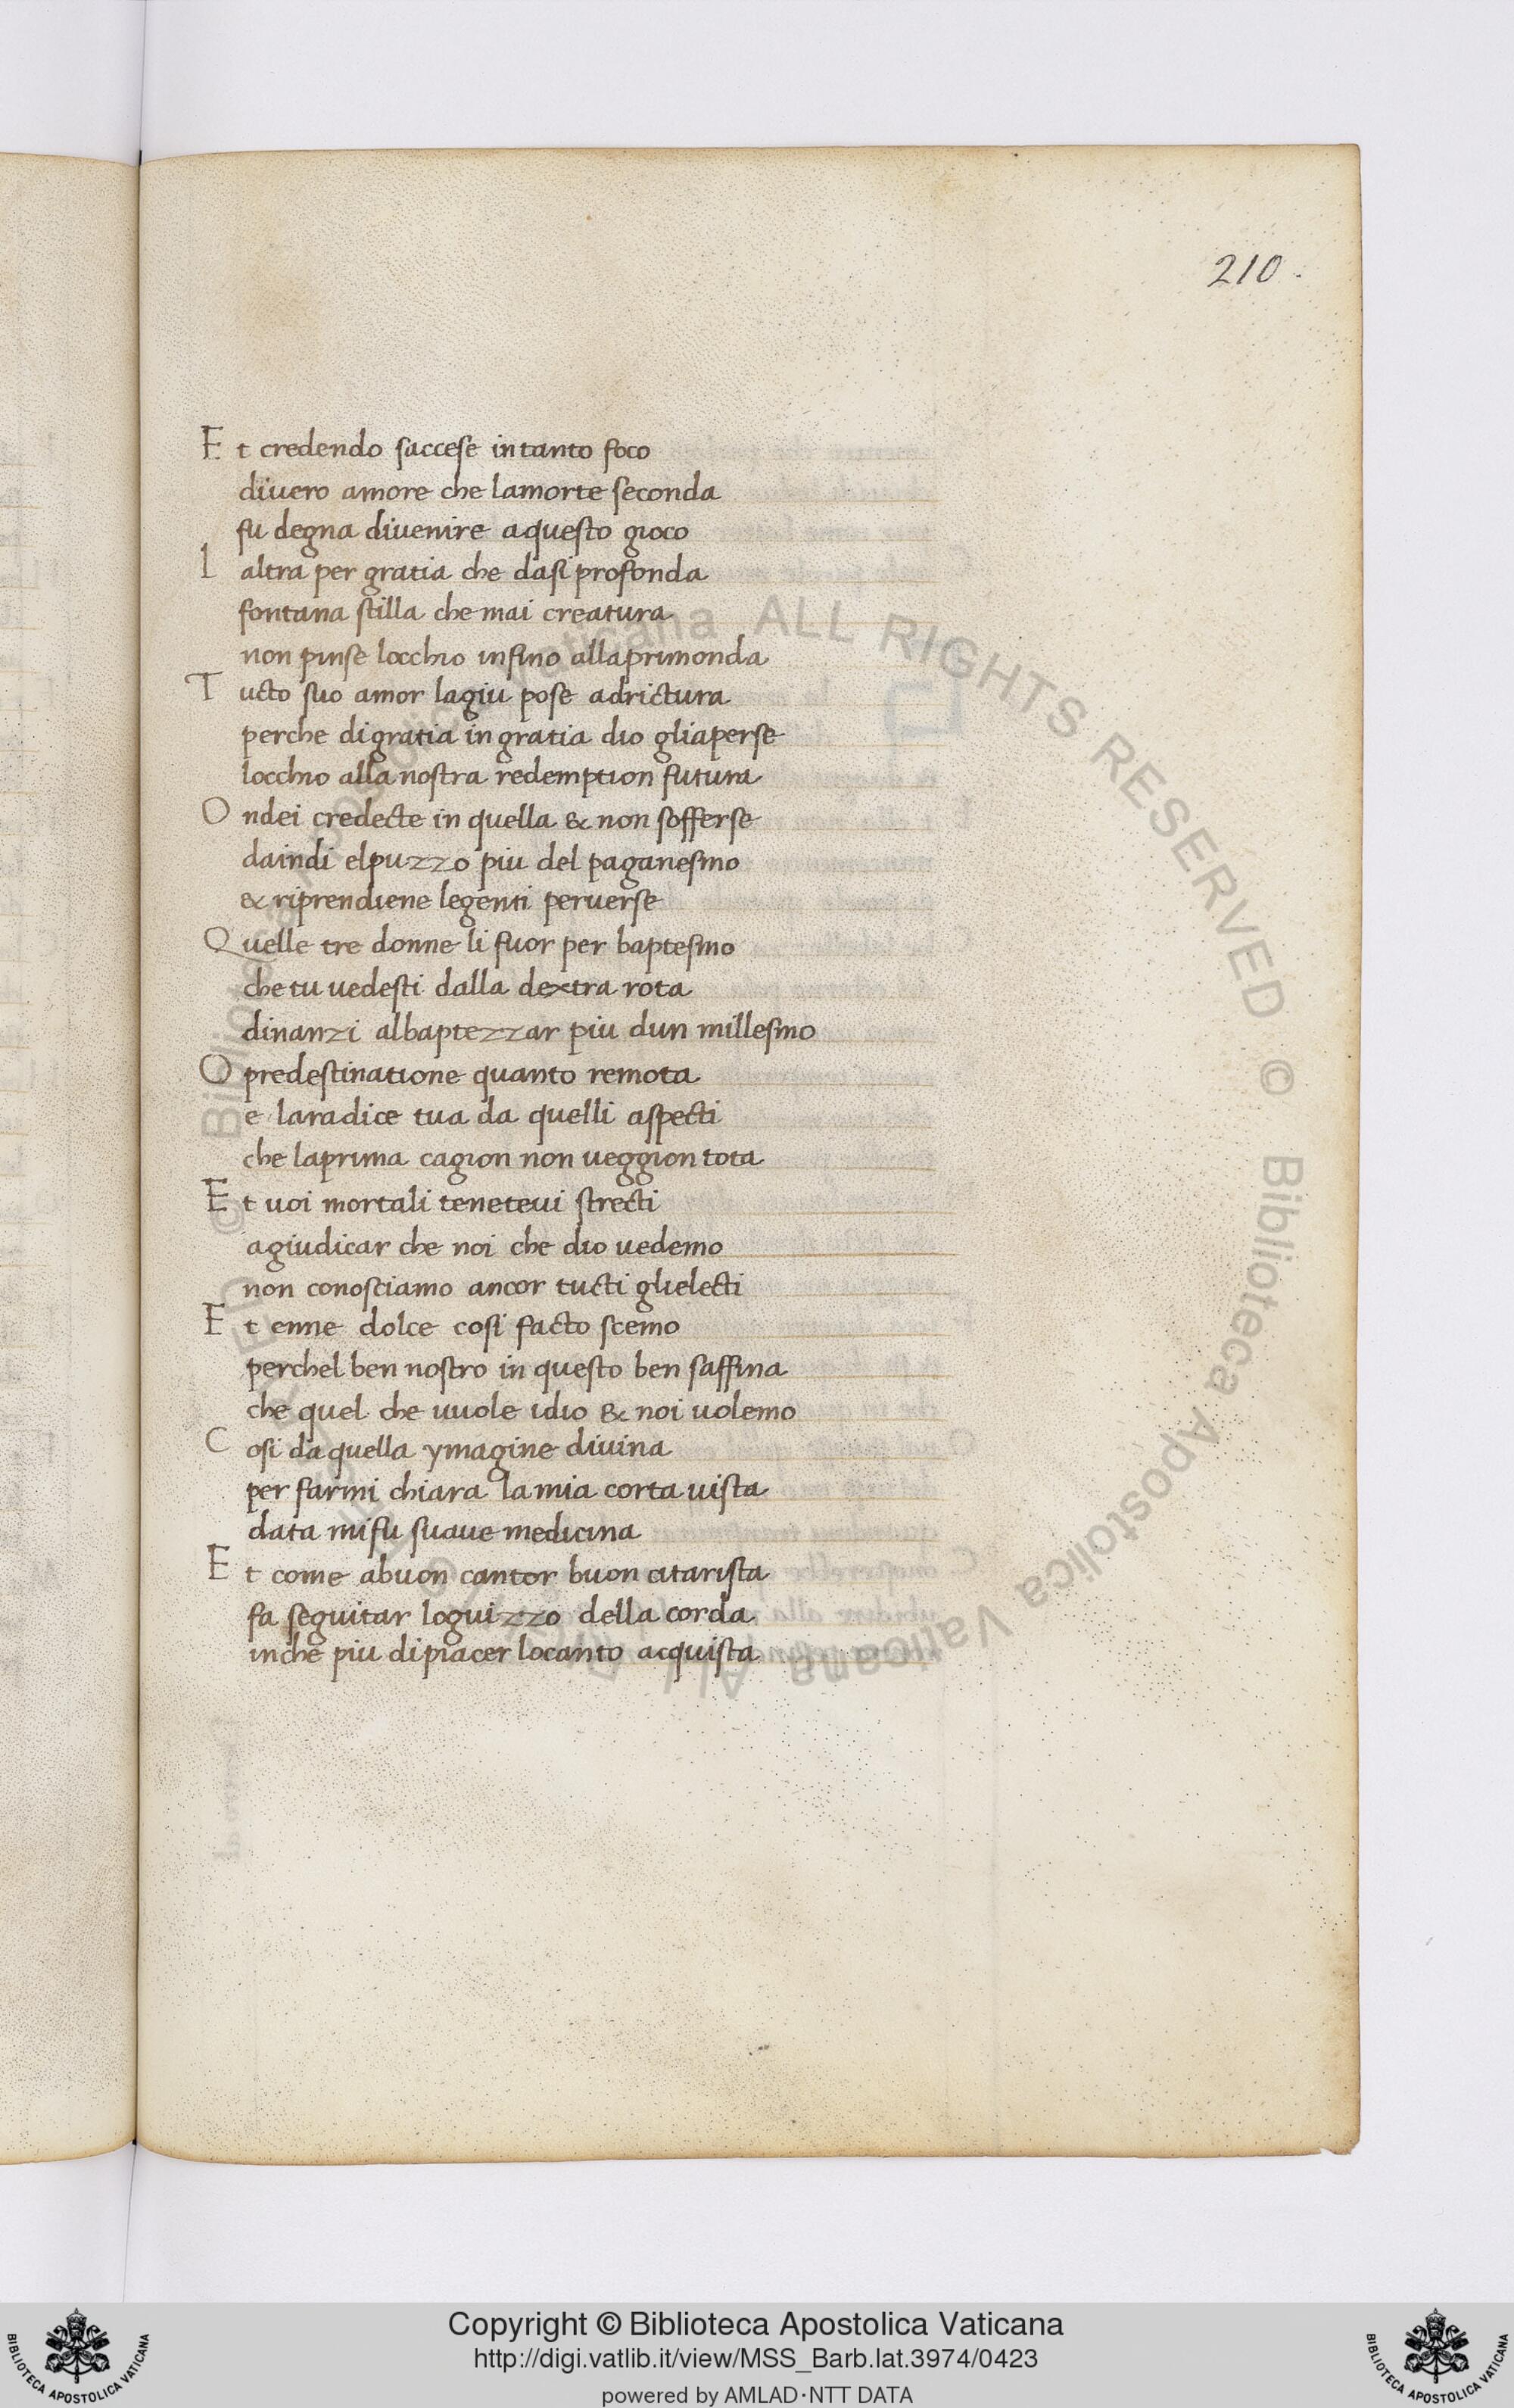 210.
Et credendo saccese intanto foco
diuero amore che lamorte seconda
fu degna diuenire aquesto gioco
L altra per gratia che dasi profonda
fontana stilla che mai creatura
non pinse locchio infino allaprimonda
Tucto suo amor lagiu pose adrictura
perche digratia in gratia dio gliaperse
locchio alla nostra redemption futura
Ondei credecte in quella & non sofferse
daindi elpuzzo piu del paganesmo
& riprendiene legenti peruerse
Quelle tre donne li fuor per baptesmo
che tu uedesti dalla dextra rota
dinanzi albaptezzar piu dun millesmo
O predestinatione quanto remota
e laradice tua da quelli aspecti
che laprima cagion non ueggion tota
Et uoi mortali teneteui strecti
agiudicar che noi che dio uedemo
non conosciamo ancor tucti glielecti
Et enne dolce cosi facto scemo
perchel ben nostro in questo ben saffina
che quel che uuole idio & noi uolemo
Cosi da quella ymagine diuina
per farmi chiara la mia corta uista
data mifu suaue medicina
Et come abuon cantor buon citarista
fa seguitar loguizzo della corda
inche piu dipiacer locanto acquista
© Biblioteca Apostolica Vaticana ALL RIGHTS RESERVED © Biblioteca Apostolica Vaticana ALL RIGHTS RESERVED
BIBLIOTECA APOSTOLICA VATICANA
Copyright © Biblioteca Apostolica Vaticana
http://digi.vatlib.it/view/MSS_Barb.lat.3974/0423
powered by AMLAD·NTT DATA
BIBLIOTECA APOSTOLICA VATICANA